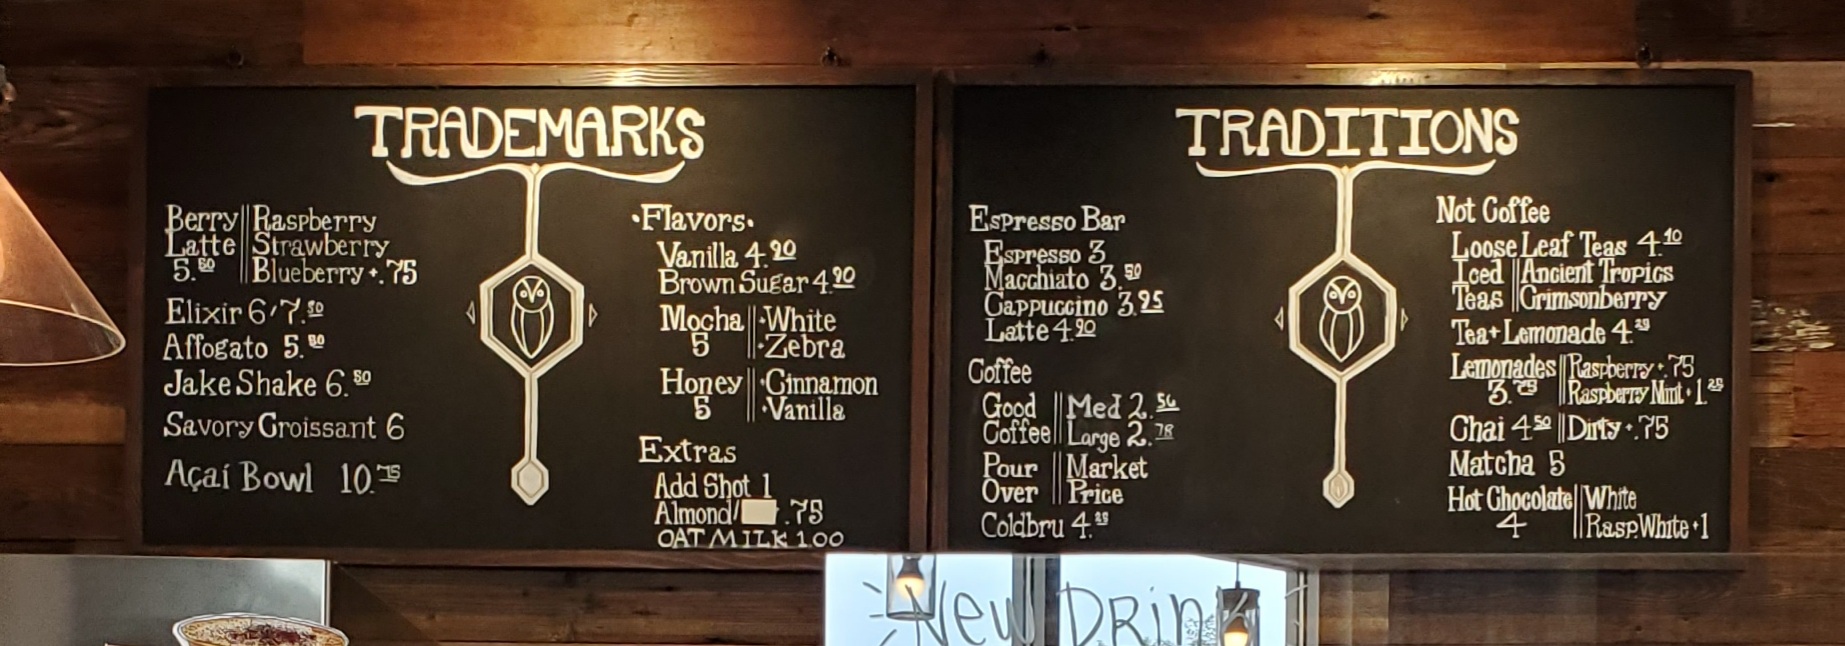 TRADEMARKS
Berry Raspberry
Latte Strawberry
5.50 Blueberry +.75
Elixir 6/7.50
Affogato 5.50
Jake Shake 6.50
Savory Croissant 6
Açaí Bowl 10.75
·Flavors·
Vanilla 4.90
Brown Sugar 4.90
Mocha ·White
5 ·Zebra
Honey ·Cinnamon
5 ·Vanilla
Extras
Add Shot 1
Almond/ .75
OAT MILK 1.00
TRADITIONS
Espresso Bar
Espresso 3
Macchiato 3.50
Cappuccino 3.95
Latte 4.90
Coffee
Good Med 2.56
Coffee Large 2.78
Pour Market
Over Price
Coldbru 4.25
Not Coffee
Loose Leaf Teas 4.10
Iced Ancient Tropics
Teas Crimsonberry
Tea + Lemonade 4.25
Lemonades Raspberry +.75
3.75 Raspberry Mint +1.25
Chai 4.50 Dirty +.75
Matcha 5
Hot Chocolate White
4 Rasp.White +1
New DRINK